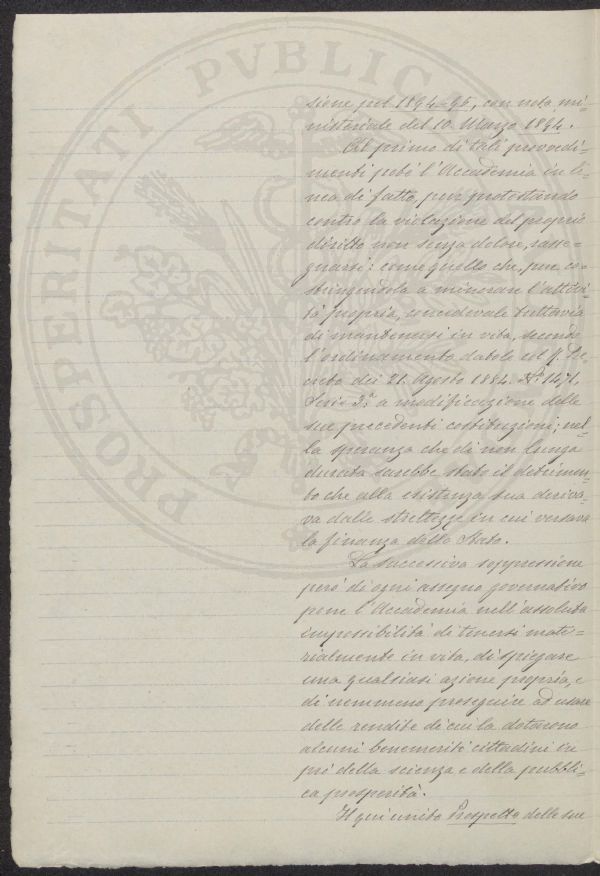 PROSPERITATI PVBLIC
sione pel 1894-95, con nota mi=
nisteriale del 10 Marzo 1894.
Al primo di tali provvedi=
menti potè l'Accademia in li=
nea di fatto, pur protestando
contro la violazione del proprio
diritto non senza dolore, rasse=
gnarsi: come quello che, pure co=
stringendola a minorare l'attivi=
tà propria, concedevale tuttavia
di mantenersi in vita, secondo
l'ordinamento datole col R. De=
creto dei 21. Agosto 1884. N.º 1471,
Serie 3.ª a modificazione delle
sue precedenti costituzioni; nel=
la speranza che di non lunga
durata sarebbe stato il detrimen=
to che alla esistenza sua deriva=
va dalle strettezze in cui versava
la finanza dello Stato.
La successiva soppressione
però di ogni assegno governativo
pone l'Accademia nell'assoluta
impossibilità di tenersi mate=
rialmente in vita, di spiegare
una qualsiasi azione propria, e
di nemmeno proseguire ad usare
delle rendite di cui la dotarono
alcuni benemeriti cittadini in
prò della scienza e della pubbli=
ca prosperità.
Il qui unito Prospetto delle sue